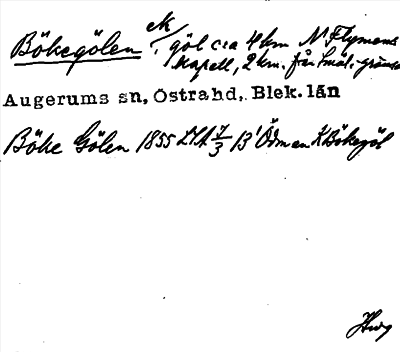 ek
Bökegölen, göl c:a 4 km N Flymens
kapell, 2 km. från Smål. gräns
Augerums sn, Östra hd, Blek. län
Böke Gölen 1855 LSA 7/3 B' Ödman K Bökegöl